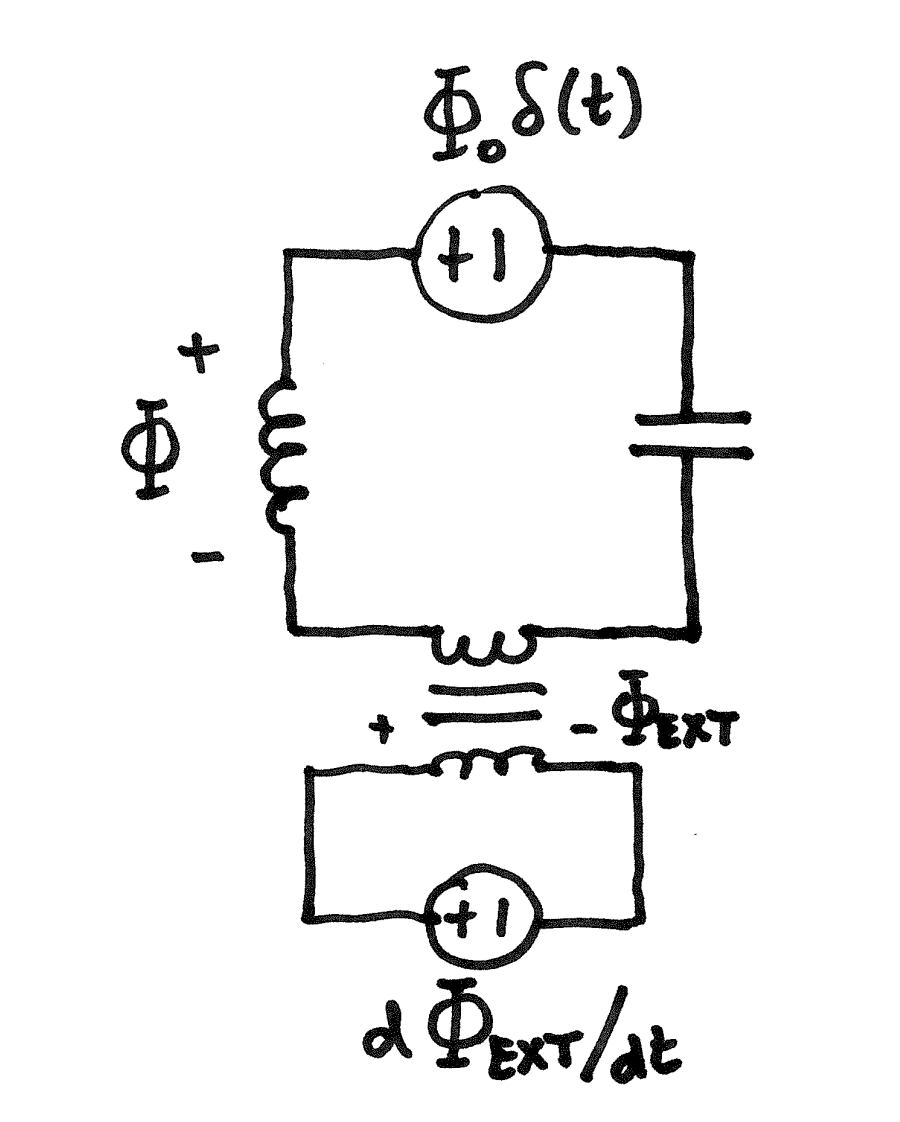 Φ₀δ(t)
+|
+
Φ
-
+ - ΦEXT
+|
dΦEXT/dt